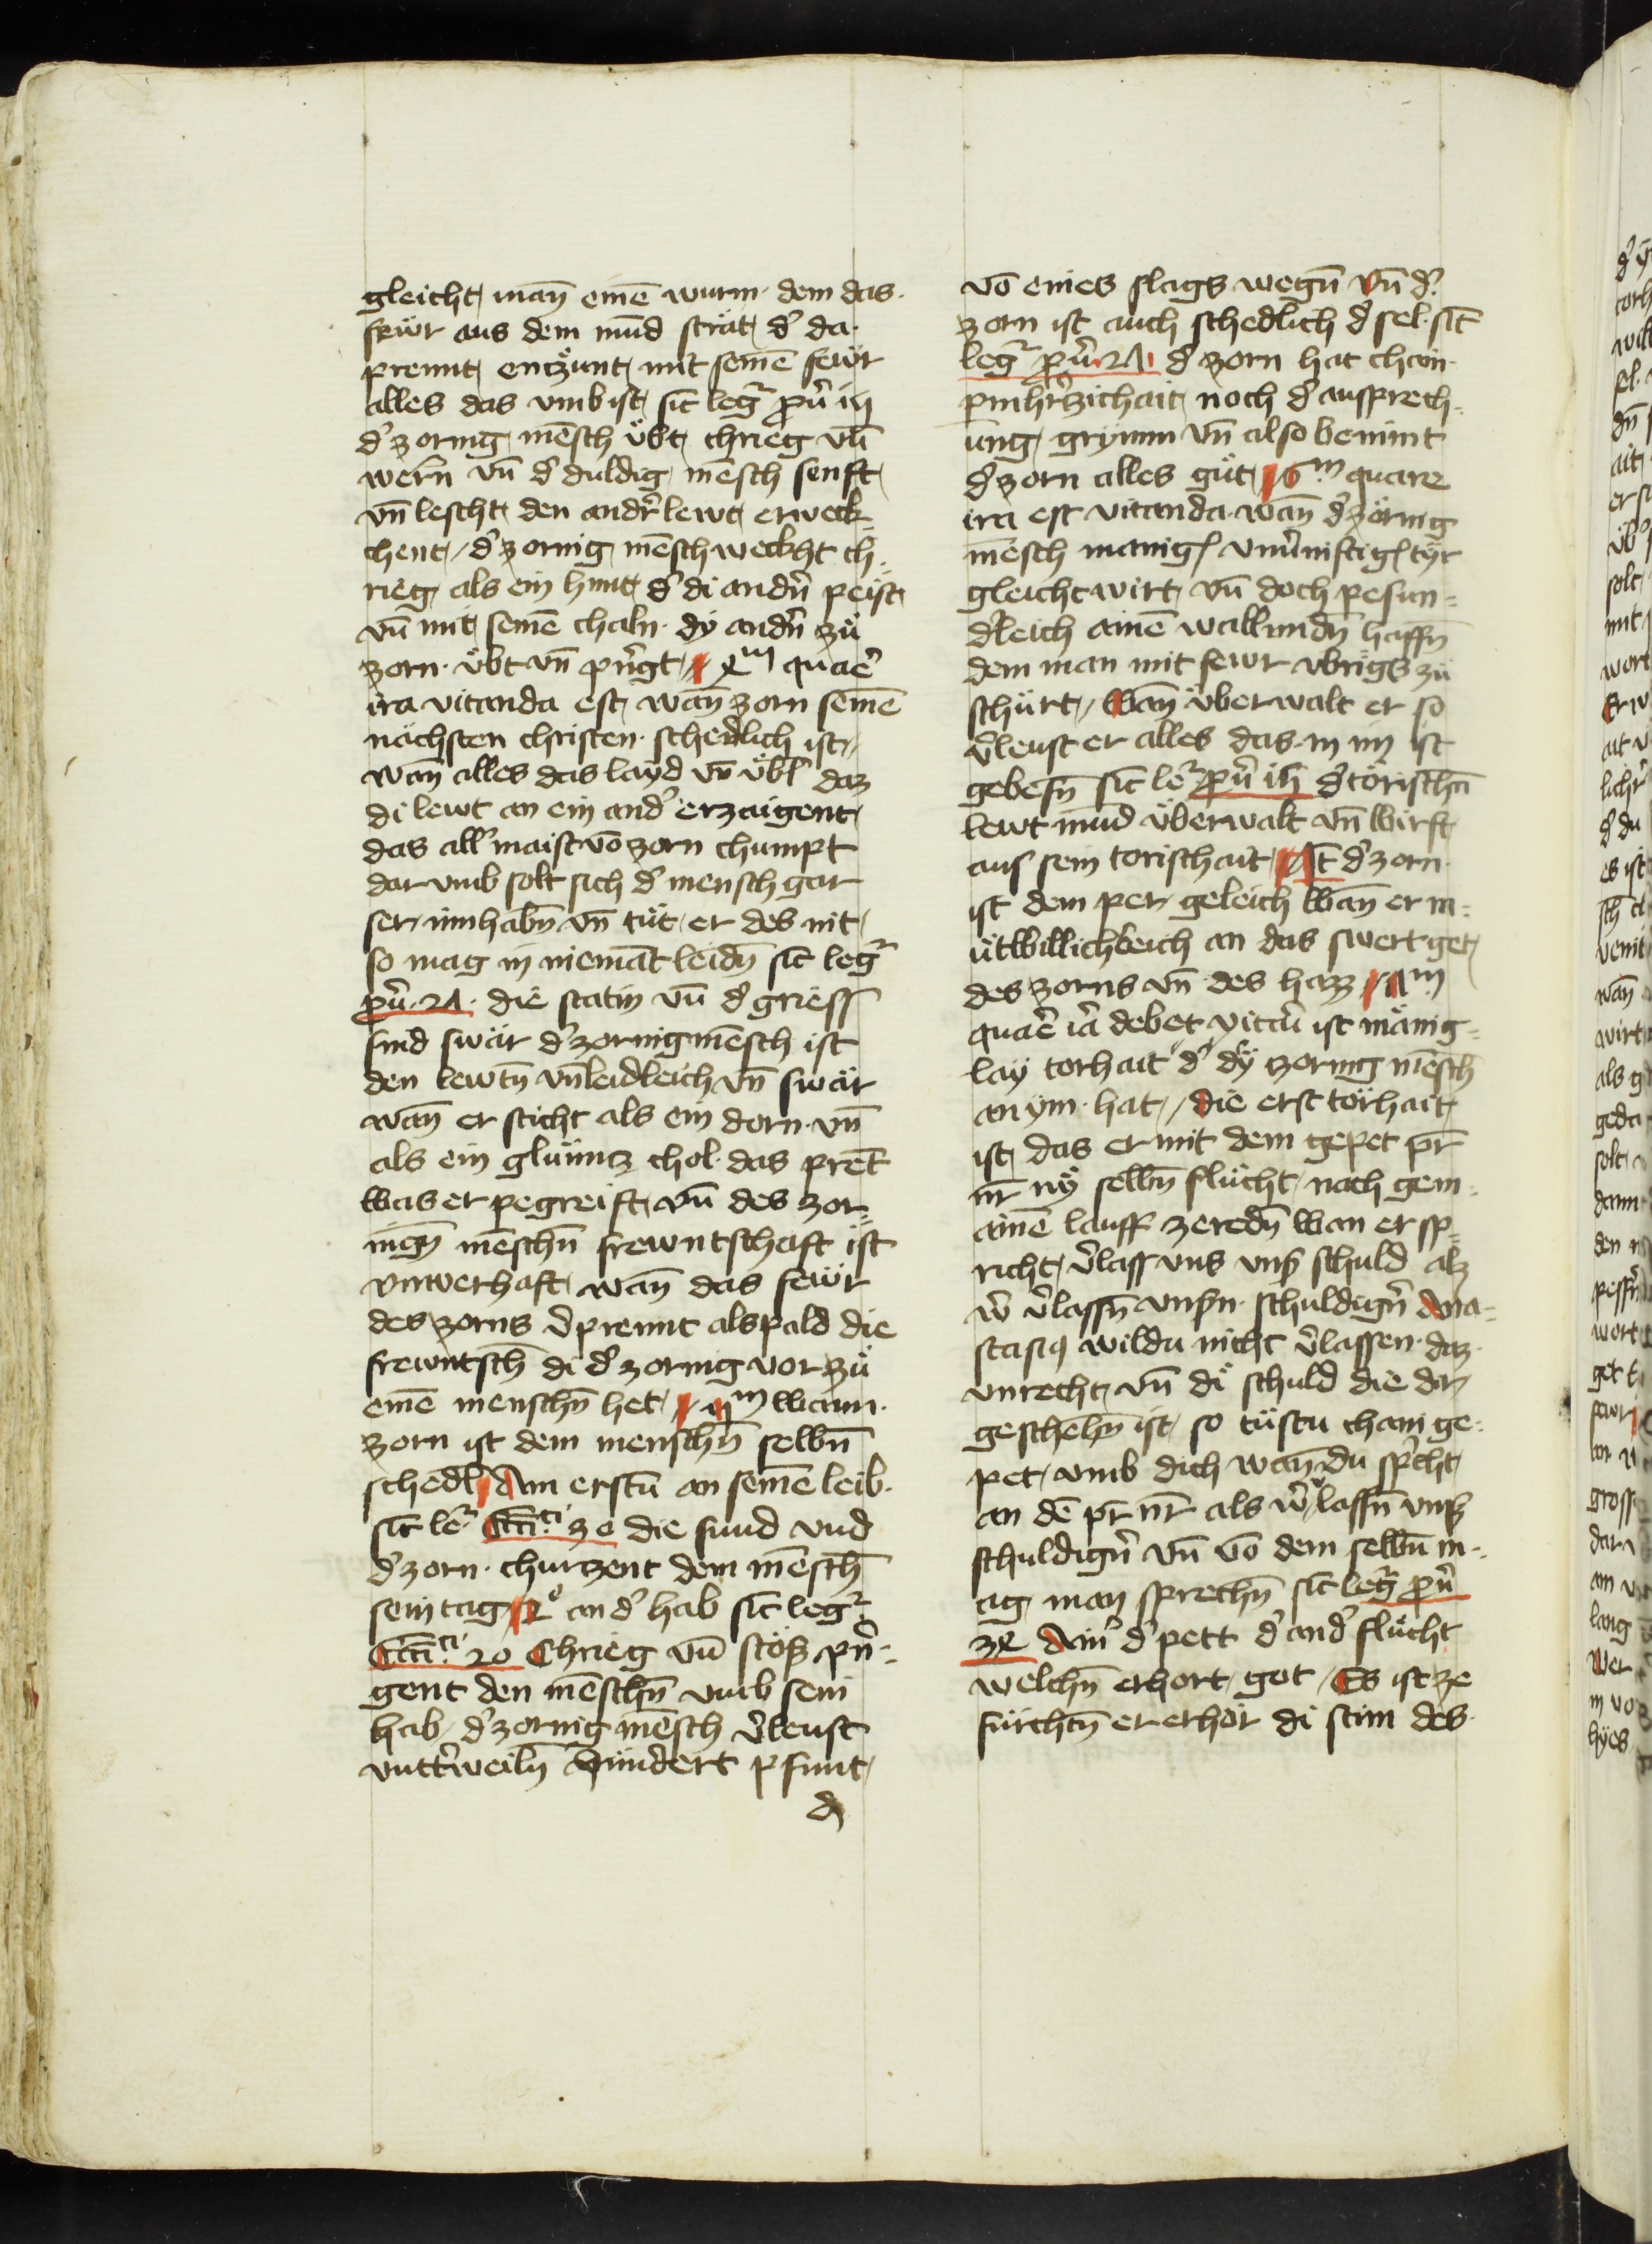 gleicht man̄ einē wurm dem das
fewr aus dem mūd strät d̓ da
prennt enczünt mit seinē fewr
alles das vmb ist sic̄ legr̄ prv̓ iij
d̓ zornig mēsch übt chrieg vn̄
wern̄ vn̄ d̓ duldig mēsch senft
vn̄ lescht den andr̓ lewt erweck-
chent / d̓ zornig mēsch weckht ch-
rieg als ein hunt d̓ di andn̓ peist
vn̄ mit seinē chaln dy andn̓ zü
zorn übt vn̄ prn̓gt quare̓
ira vitanda est wan̄ zorn seinē
nächsten christen schedlich ist
wan̄ alles das layd vn̄ übl daz
di lewt an ein and̓ erzaigent
das all̓ maist vō zorn chumpt
dar vmb solt sich d̓ mensch gar
ser inn habn̄ vn̄ tüt er des nit
so mag in niemāt leidn̄ sic̄ legr̄
prv̓ 2A die statin vn̄ d̓ griess
sind swär d̓ zornig mēsch ist
den lewtn̄ vnleidleich vn̄ swär
wan̄ er sticht als ein dorn vn̄
als ein glüuncz chol das prēt
was er pegreift vn̄ des zor-
nign̄ mēschn̄ frewntschaft ist
vnwerhaft wan̄ das fewr
des zorns v̓prennt alspald die
frewntsch̄ di d̓ zornig vor zü
einē menschn̄ het wann
zorn ist dem menschn̄ selbn̄
schedl Am erstn̄ an seinē leib
sic̄ le̓ Ecc̄i 30 die sund vnd
d̓ zorn churzent dem mēsch̄
sein tag 2° an d̓ hab sic̄ legr̄
Ecc̄i 20 Chrieg vn̄ stöß prn̓-
gent den mēschn̄ vmb sein
hab d̓ zornig mēsch v̓leust
vntt̓weiln̄ hundert pfunt
vō eines slags wegn̄ vn̄ d̓
zorn ist auch schedlich d̓ sel sic̄
legr̄ prv̓ 2A d̓ zorn hat chain
pmhr̓zichait noch d̓ aussprech-
ung grymm vn̄ also benimt
d̓ zorn alles güt 6m quare
ira est vitanda wan̄ d̓ zörnig
mēsch manig vnu̓niftig tyr
gleicht wirt vn̄ doch pesun-
d̓leich ainē wallundn̄ haffn̄
dem man mit fewr vbrigs zü
schürt / Wan̄ überwalt er so
v̓leust er alles das in im ist
gebesn̄ sic̄ le̓ prv̓ d̓ törischn̄
lewt mūd überwalt vn̄ wirft
aus sein torischait It̄ d̓ zorn
ist dem per geleich wan̄ er m-
ütwillichleich an das swert get
des zorns vn̄ des hazz
quare̓ ira̓ debet vitar̓ ist mänig-
lay torhait d̓ dy zornig mēsch̄
an ym hat / die erst törhait
ist das er mit dem gepet pr̄
nr̄ selbn̄ flücht nach gem-
ainē lauff zeredn̄ wan er sp-
richt v̓lass vns vnß schuld alz
w̓ v̓lassn̄ vnßn̄ schuldign̓ Ana-
stasiq wildu nicht v̓lassen daz
vnrecht vn̄ di schuld die dar
geschehn̄ ist so tüstu chain ge-
pet vmb dich wan̄ du sp̓cht
an dē pr̄ nr̄ als w̓ v̓lassn̄ vnß
schuldign̓ vn̄ vō dem selbn̄ m-
ag man sprechn̄ sic̄ legr̄ prv̓
Ain̓ d̓ pett d̓ and̓ flücht
welchn̄ erhort got / Es ist ze
fürchtn̄ er erhör di stim des